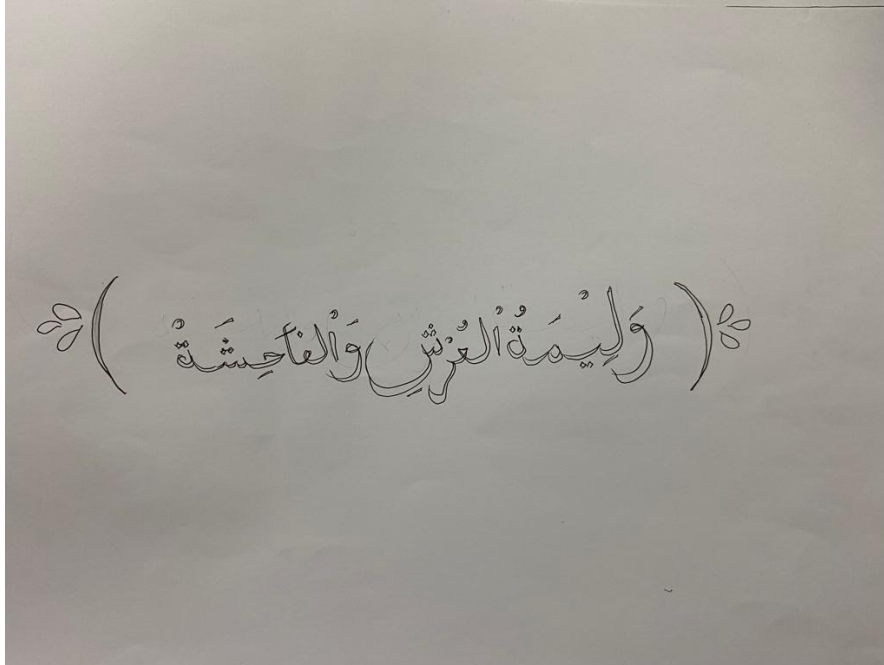 ( وَلِيْمَةُ الْعُرْشِ وَالْفَاحِشَةُ )